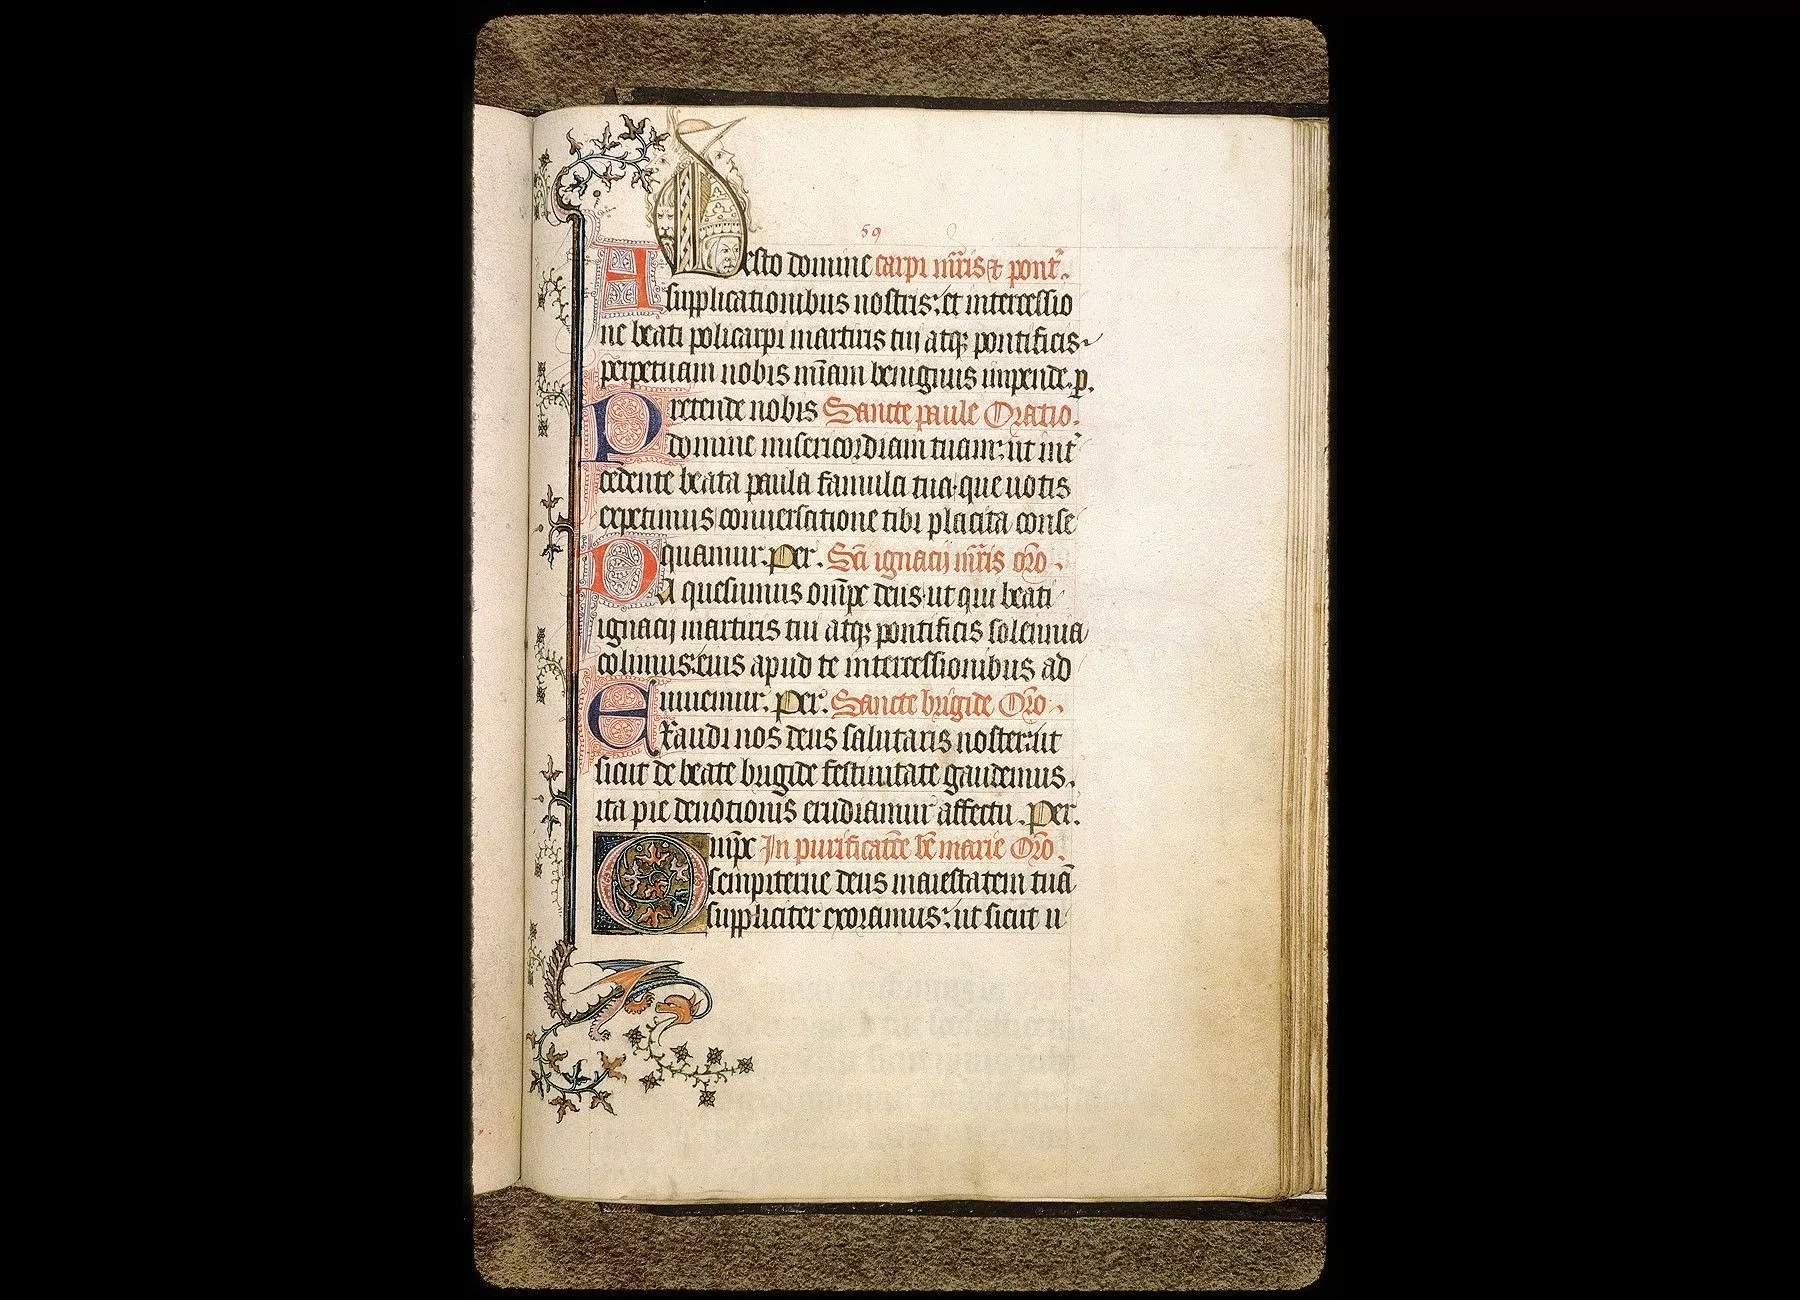 59
Adesto domine carpi mr̄is et pont̄.
supplicationibus nostris: et intercessio
ne beati policarpi martiris tui atqꝫ pontificis
perpetuam nobis mīam benignus impende. p.
Pretende nobis Sancte paule Oratio.
domine misericordiam tuam: ut int̄
cedente beata paula famula tua que uotis
expetimus conuersatione tibi placita conse
quamur. Per. Sc̄i ignacij mr̄is or̄o.
Da quesumus om̄pc deus ut qui beati
ignacij martiris tui atqꝫ pontificis solennia
colimus: eius apud te intercessionibus ad
iuuemur. Per. Sancte brigide Or̄o.
Exaudi nos deus salutaris noster: ut
sicut de beate brigide festiuitate gaudemus.
ita pie deuotionis erudiamur affectu. Per.
Om̄pc In purificatōe bē marie Or̄o.
sempiterne deus maiestatem tuā
suppliciter exoramus: ut sicut u